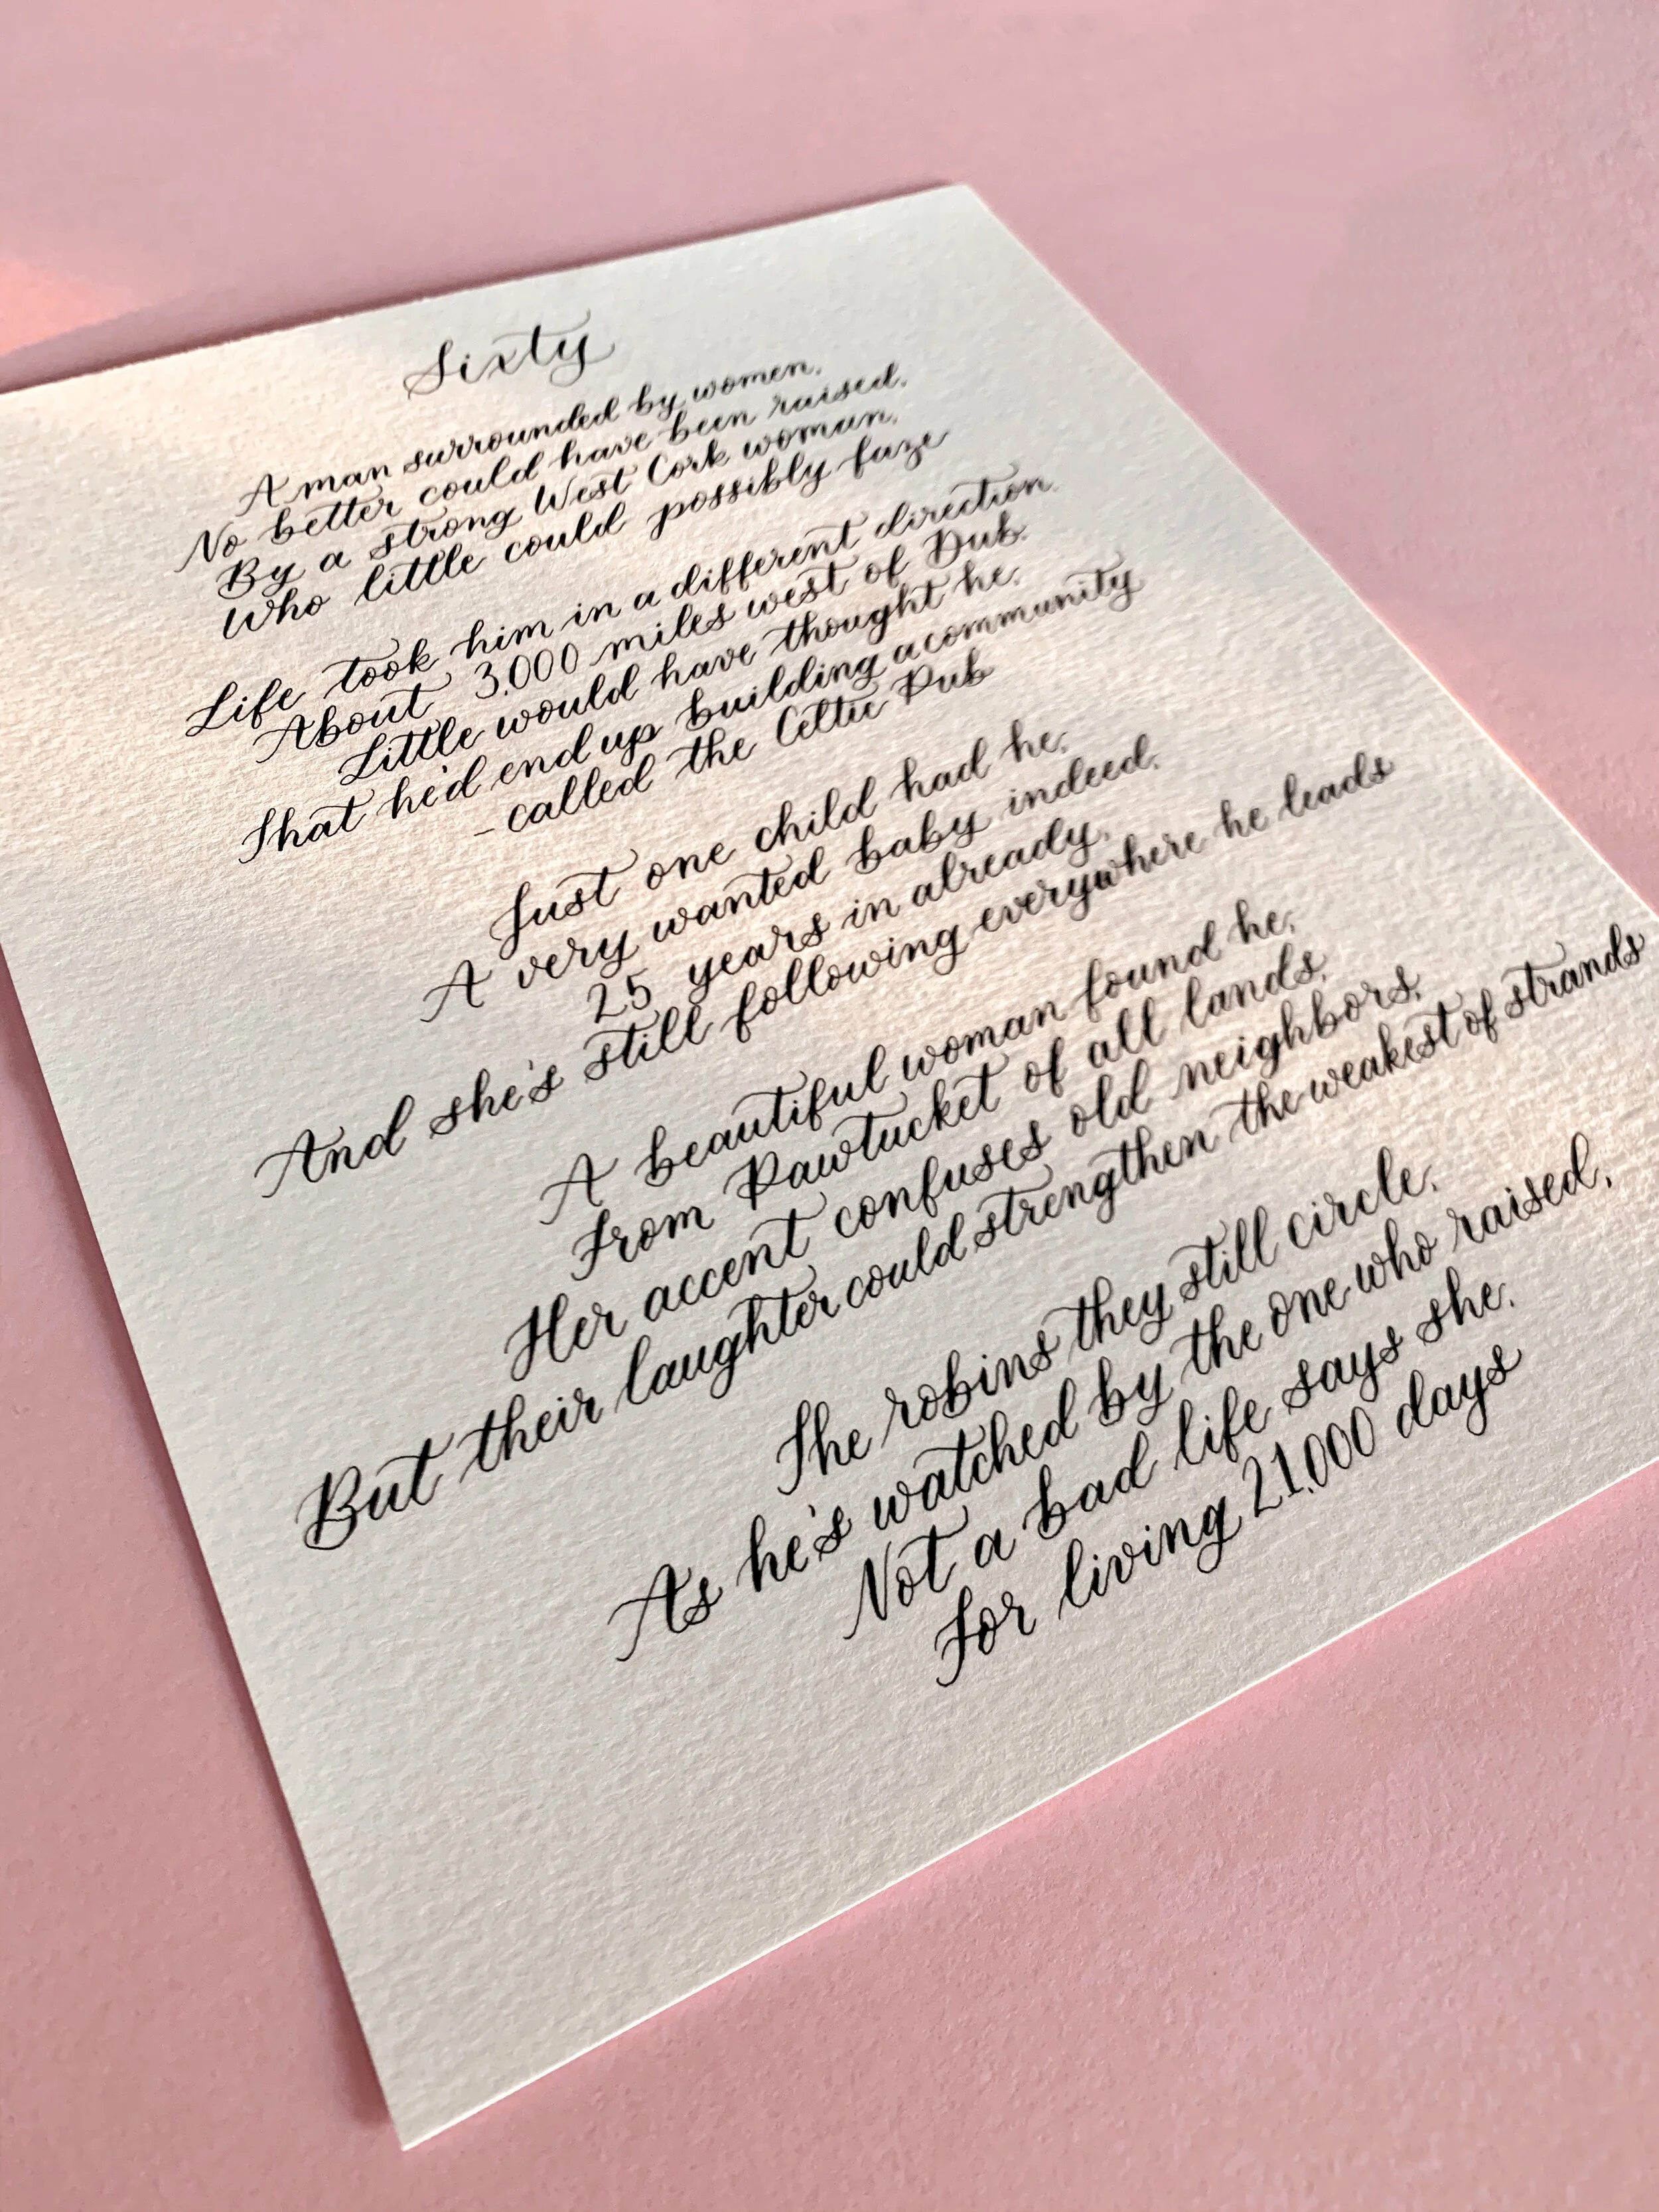 Sixty
A man surrounded by women,
No better could have been raised,
By a strong West Cork woman,
Who little could possibly faze
Life took him in a different direction,
About 3,000 miles west of Dub,
Little would have thought he,
That he'd end up building a community
- called the Celtic Pub
Just one child had he,
A very wanted baby indeed,
25 years in already,
And she's still following everywhere he leads
A beautiful woman found he,
From Pawtucket of all lands,
Her accent confuses old neighbors,
But their laughter could strengthen the weakest of strands
The robins they still circle,
As he's watched by the one who raised,
Not a bad life says she,
For living 21,000 days